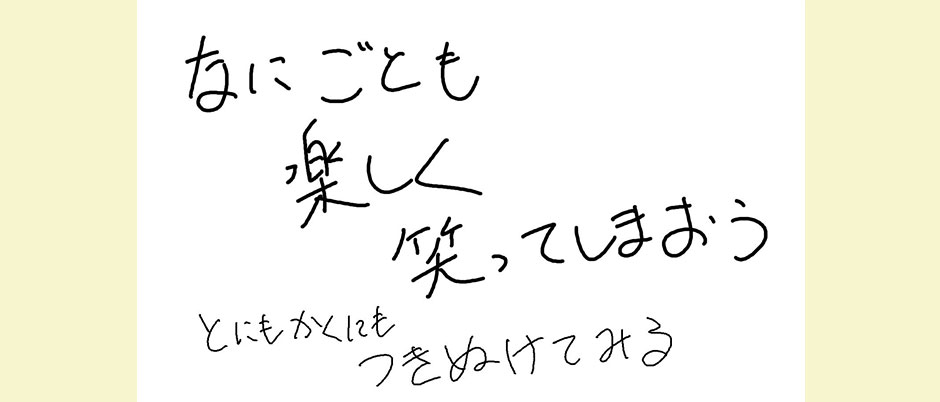 なにごとも
楽しく
笑ってしまおう
とにもかくにも
つきぬけてみる